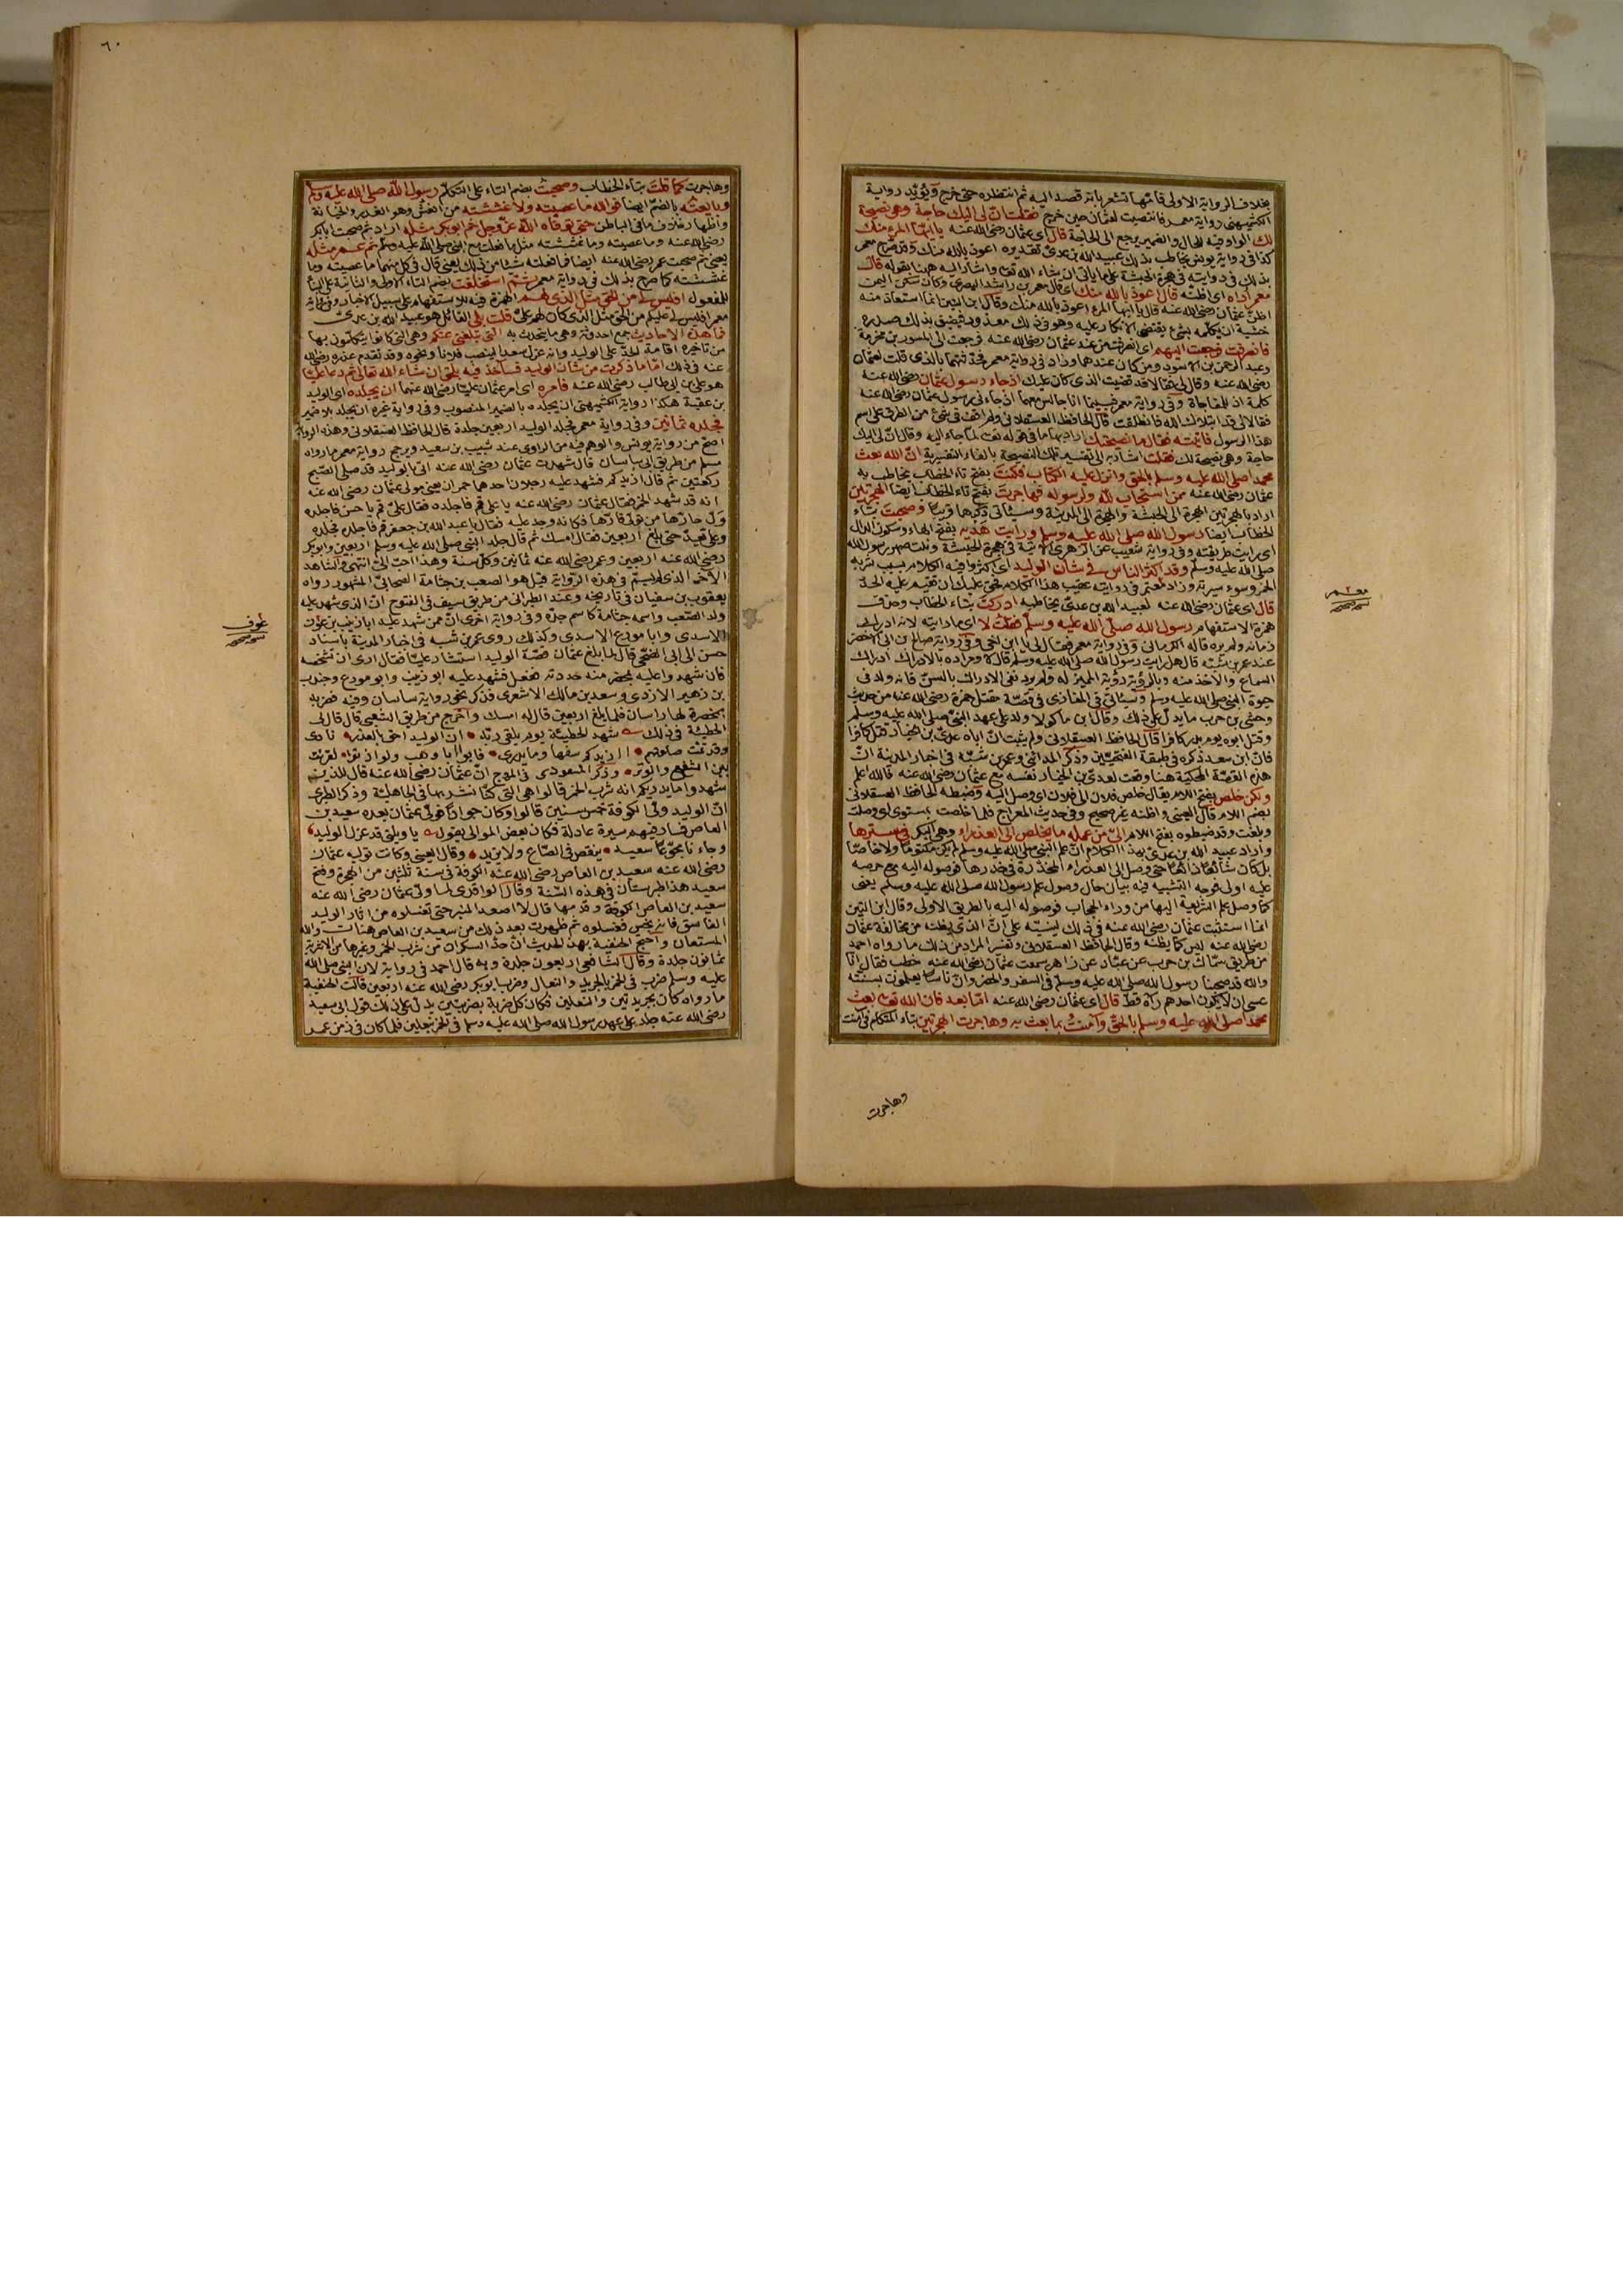 بخلاف الرواية الاولى فانها تشعر بانه قصد اليه ثم انتظره حتى خرج ويؤيد رواية
الكشميهنى رواية معمر فانتصبت لعثمان حين خرج فقلت ان لى اليك حاجة وهى نصيحة
لك الواو فيه للحال والضمير يرجع الى الحاجة قال اى عثمان رضى الله عنه يا ايها المرء منك
كذا فى رواية يونس يخاطب بذلك عبيد الله بن عدى تقديره اعوذ بالله منك وقد صرح معمر
بذلك فى روايته فى هجرة الحبشة على ما ياتى ان شاء الله تعا واشار اليه ههنا بقوله قال
معمر اراه اى اظنه قال اعوذ بالله منك اى قال معمر بن راشد البصرى وكان سكن اليمن
اظن عثمان رضى الله عنه قال يا ايها المرء اعوذ بالله منك وقال ابن التين انما استعاذ منه
خشية ان يكلمه بشئ يقتضى الانكار عليه وهو فى ذلك معذور فيضيق بذلك صدره
فانصرفت فرجعت اليهم اى انصرفت من عند عثمان رضى الله عنه فرجعت الى المسور بن مخرمة
وعبد الرحمن بن الاسود ومن كان عندهما وزاد فى رواية معمر فحدثتهما بالذى قلت لعثمان
رضى الله عنه وقال لى فقالا قد قضيت الذى كان عليك اذ جاء رسول عثمان رضى الله عنه
كلمة اذ للمفاجاة وفى رواية معمر فبينما انا جالس معهما اذ جاءنى رسول عثمان رضى الله عنه
فقالا لى قد ابتلاك الله فانطلقت قال الحافظ العسقلانى ولم اقف فى شئ من الطرق على اسم
هذا الرسول فاتيته فقال ما نصيحتك اراد بها ما فى قوله لما جاء اليه وقال ان لى اليك
حاجة وهى نصيحة لك فقلت اشار به الى تفسير تلك النصيحة بالفاء التفسيرية ان الله بعث
محمدا صلى الله عليه وسلم بالحق وانزل عليه الكتاب فكنت بفتح تاء الخطاب يخاطب به
عثمان رضى الله عنه ممن استجاب لله ولرسوله فهاجرت بفتح تاء الخطاب ايضا الهجرتين
اراد بالهجرتين الهجرة الى الحبشة والهجرة الى المدينة وسياتى ذكرها قريبا وصحبت بتاء
الخطاب ايضا رسول الله صلى الله عليه وسلم ورايت هديه بفتح الهاء وسكون الدال
اى رايت طريقته وفى رواية شعيب عن الزهرى الاتية فى هجرة الحبشة ونلت صهر رسول الله
صلى الله عليه وسلم وقد اكثر الناس فى شان الوليد اى اكثروا فيه الكلام بسبب شربه
الخمر وسوء سيرته وزاد معمر فى روايته عقيب هذا الكلام فحق عليك ان تقيم عليه الحد
قال اى عثمان رضى الله عنه لعبيد الله بن عدى يخاطبه ادركت بتاء الخطاب وحذف
همزة الاستفهام رسول الله صلى الله عليه وسلم فقلت لا اى ما رايته لانه ادرك
زمانه ولم يره قاله الكرمانى وفى رواية معمر فقال لى يا ابن اخى وفى رواية صالح بن ابى الاخضر
عند عمر بن شبة قال هل رايت رسول الله صلى الله عليه وسلم قال لا ومراده بالادراك ادراك
السماع والاخذ منه وبالرؤية رؤية المميز له ولم يرد نفى الادراك بالسن فانه ولد فى
حيوة النبى صلى الله عليه وسلم وسياتى فى المغازى فى قصة مقتل حمزة رضى الله عنه من حديث
وحشى بن حرب ما يدل على ذلك وقال ابن ماكولا ولد على عهد النبى صلى الله عليه وسلم
وقتل ابوه يوم بدر كافرا قال الحافظ العسقلانى ولم يثبت ان اباه عدى بن الخيار قتل كافرا
فان ابن سعد ذكره فى طبقة الفتحيين وذكر المدائنى وعمر بن شبة فى اخبار المدينة ان
هذه القصة المحكية هنا وقعت لعدى بن الخيار نفسه مع عثمان رضى الله عنه فالله اعلم
ولكن خلص بفتح اللام يقال خلص فلان الى فلان اى وصل اليه وضبطه الحافظ العسقلانى
بضم اللام قال العينى واظنه غير صحيح وفى حديث المعراج فلما خلصت بمستوى اى وصلت
وبلغت وقد ضبطوه بفتح اللام الى من علمه ما يخلص الى العذراء وهى البكر فى سترها
واراد عبيد الله بن عدى بهذا الكلام ان علم النبى صلى الله عليه وسلم لم يكن مكتوما ولا خاصا
بل كان شائعا ذائعا حتى وصل الى العذراء المخدرة فى خدرها فوصوله اليه مع حرصه
عليه اولى فوجه التشبيه فيه بيان حال وصول علم رسول الله صلى الله عليه وسلم يعنى
كما وصل علم الشريعة اليها من وراء الحجاب فوصوله اليه بالطريق الاولى وقال ابن التين
انما استثبت عثمان رضى الله عنه فى ذلك لينبه على ان الذى يظنه من مخالفة عثمان
رضى الله عنه ليس كما يظنه وقال الحافظ العسقلانى وتفسير المراد من ذلك ما رواه احمد
من طريق سماك بن حرب عن عباد بن زاهر سمعت عثمان رضى الله عنه خطب فقال انا
والله قد صحبنا رسول الله صلى الله عليه وسلم فى السفر والحضر وان ناسا يعلمون بسنته
عسى ان لا يكون احدهم رآه قط قال اى عثمان رضى الله عنه اما بعد فان الله تعا بعث
محمدا صلى الله عليه وسلم بالحق وآمنت بما بعث به وهاجرت الهجرتين بتاء المتكلم فى آمنت
وهاجرت
معمر
٦٠
وهاجرت كما قلت بتاء الخطاب وصحبت بضم التاء على التكلم رسول الله صلى الله عليه وسلم
وبايعته بالضم ايضا فوالله ما عصيته ولا غششته من الغش وهو الغدر والخيانة
واظهار خلاف ما فى الباطن حتى توفاه الله عز وجل ثم ابو بكر مثله اراد ثم صحبت ابا بكر
رضى الله عنه وما عصيته وما غششته مثل ما فعلت مع النبى صلى الله عليه وسلم ثم عمر مثله
يعنى ثم صحبت عمر رضى الله عنه ايضا فما فعلته شئا من ذلك يعنى قال فى كل منهما ما عصيته وما
غششته كما صرح بذلك فى رواية معمر ثم استخلفت بضم التاء الاولى والثانية على البناء
للمفعول افليس لى من الحق مثل الذى لهم الهمزة فيه للاستفهام على سبيل الاخبار وفى رواية
معمر افليس لى عليكم من الحق مثل الذى كان لهم على قلت بلى القائل هو عبيد الله بن عدى
فما هذه الاحاديث جمع احدوثة وهى ما يتحدث به التى تبلغنى عنكم وهى التى كانوا يتكلمون بها
من تاخيره اقامة الحد على الوليد وانه عزل سعدا لينصب فلانا ونحوه وقد تقدم عذره رضى الله
عنه فى ذلك اما ما ذكرت من شان الوليد فسآخذ فيه بالحق ان شاء الله تعالى ثم دعا عليا
هو على بن ابى طالب رضى الله عنه فامره اى امر عثمان عليا رضى الله عنهما ان يجلده اى الوليد
بن عقبة هكذا رواية الكشميهنى ان يجلده بالضمير المنصوب وفى رواية غيره ان يجلد بلا ضمير
فجلده ثمانين وفى رواية معمر فجلد الوليد اربعين جلدة قال الحافظ العسقلانى وهذه الرواية
اصح من رواية يونس والوهم فيه من الراوى عنه شبيب بن سعيد ويرجح رواية معمر ما رواه
مسلم من طريق ابى ساسان قال شهدت عثمان رضى الله عنه اتى بالوليد قد صلى الصبح
ركعتين ثم قال ازيدكم فشهد عليه رجلان احدهما حمران يعنى مولى عثمان رضى الله عنه
انه قد شهد الخمر فقال عثمان رضى الله عنه يا على قم فاجلده فقال على قم يا حسن فاجلده
ول حارها من تولى قارها فكانه وجد عليه فقال يا عبد الله بن جعفر قم فاجلده فجلده
وعلى يعد حتى بلغ اربعين فقال امسك ثم قال جلد النبى صلى الله عليه وسلم اربعين وابو بكر
رضى الله عنه اربعين وعمر رضى الله عنه ثمانين وكل سنة وهذا احب الى انتهى والشاهد
الآخر الذى لم يسم فى هذه الرواية قيل هو الصعب بن جثامة الصحابى المشهور رواه
يعقوب بن سفيان فى تاريخه وعند الطبرانى من طريق سيف فى الفتوح ان الذى شهد عليه
ولد الصعب واسمه جثامة كاسم جده وفى رواية اخرى ان ممن شهد عليه ابا زينب بن عوف
الاسدى وابا مورع الاسدى وكذلك روى عمر بن شبة فى اخبار المدينة باسناد
حسن الى ابى الضحى قال لما بلغ عثمان قصة الوليد استشار عليا فقال ارى ان تشخصه
فان شهدوا عليه بمحضر منه حددته ففعل فشهد عليه ابو زينب وابو مورع وجندب
بن زهير الازدى وسعد بن مالك الاشعرى فذكر نحو رواية ساسان وفيه فضربه
بمخصرة لها راسان فلما بلغ اربعين قال له امسك واخرج من طريق الشعبى قال قال
الحطيئة فى ذلك شهد الحطيئة يوم يلقى ربه ان الوليد احق بالعذر نادى
وقد تمت صلوتهم أازيدكم سفها وما يدرى فابوا ابا وهب ولو اذنوا لقرنت
بين الشفع والوتر وذكر المسعودى فى المروج ان عثمان رضى الله عنه قال للذين
شهدوا ما يدريكم انه شرب الخمر قالوا هى التى كنا نشربها فى الجاهلية وذكر الطبرى
ان الوليد ولى الكوفة خمس سنين قالوا وكان جوادا فولى عثمان بعده سعيد بن
العاص فسار فيهم سيرة عادلة فكان بعض الموالى يقول يا ويلتى قد عزل الوليد
وجاءنا مجوعا سعيد ينقص فى الصاع ولا يزيد وقال العينى وكانت تولية عثمان
رضى الله عنه سعيد بن العاص رضى الله عنه الكوفة فى سنة ثلثين من الهجرة وفتح
سعيد هذا طبرستان فى هذه السنة وقال الواقدى لما ولى عثمان رضى الله عنه
سعيد بن العاص الكوفة وقدمها قال لا اصعد المنبر حتى تغسلوه من اثار الوليد
الفاسق فانه نجس فغسلوه ثم ظهرت بعد ذلك من سعيد بن العاص هنات والله
المستعان واحتج الحنفية بهذا الحديث ان حد السكران من شرب الخمر وغيرها من الاشربة
ثمانون جلدة وقال الشافعى اربعون جلدة وبه قال احمد فى رواية لان النبى صلى الله
عليه وسلم ضرب فى الخمر بالجريد والنعال وضرب ابو بكر رضى الله عنه اربعين قالت الحنفية
ما رواه كان بجريدتين والنعلين فكان كل ضربة بضربتين يدل على ذلك قول ابى سعيد
رضى الله عنه جلد على عهد رسول الله صلى الله عليه وسلم فى الخمر بنعلين فلما كان فى زمن عمر
عوف